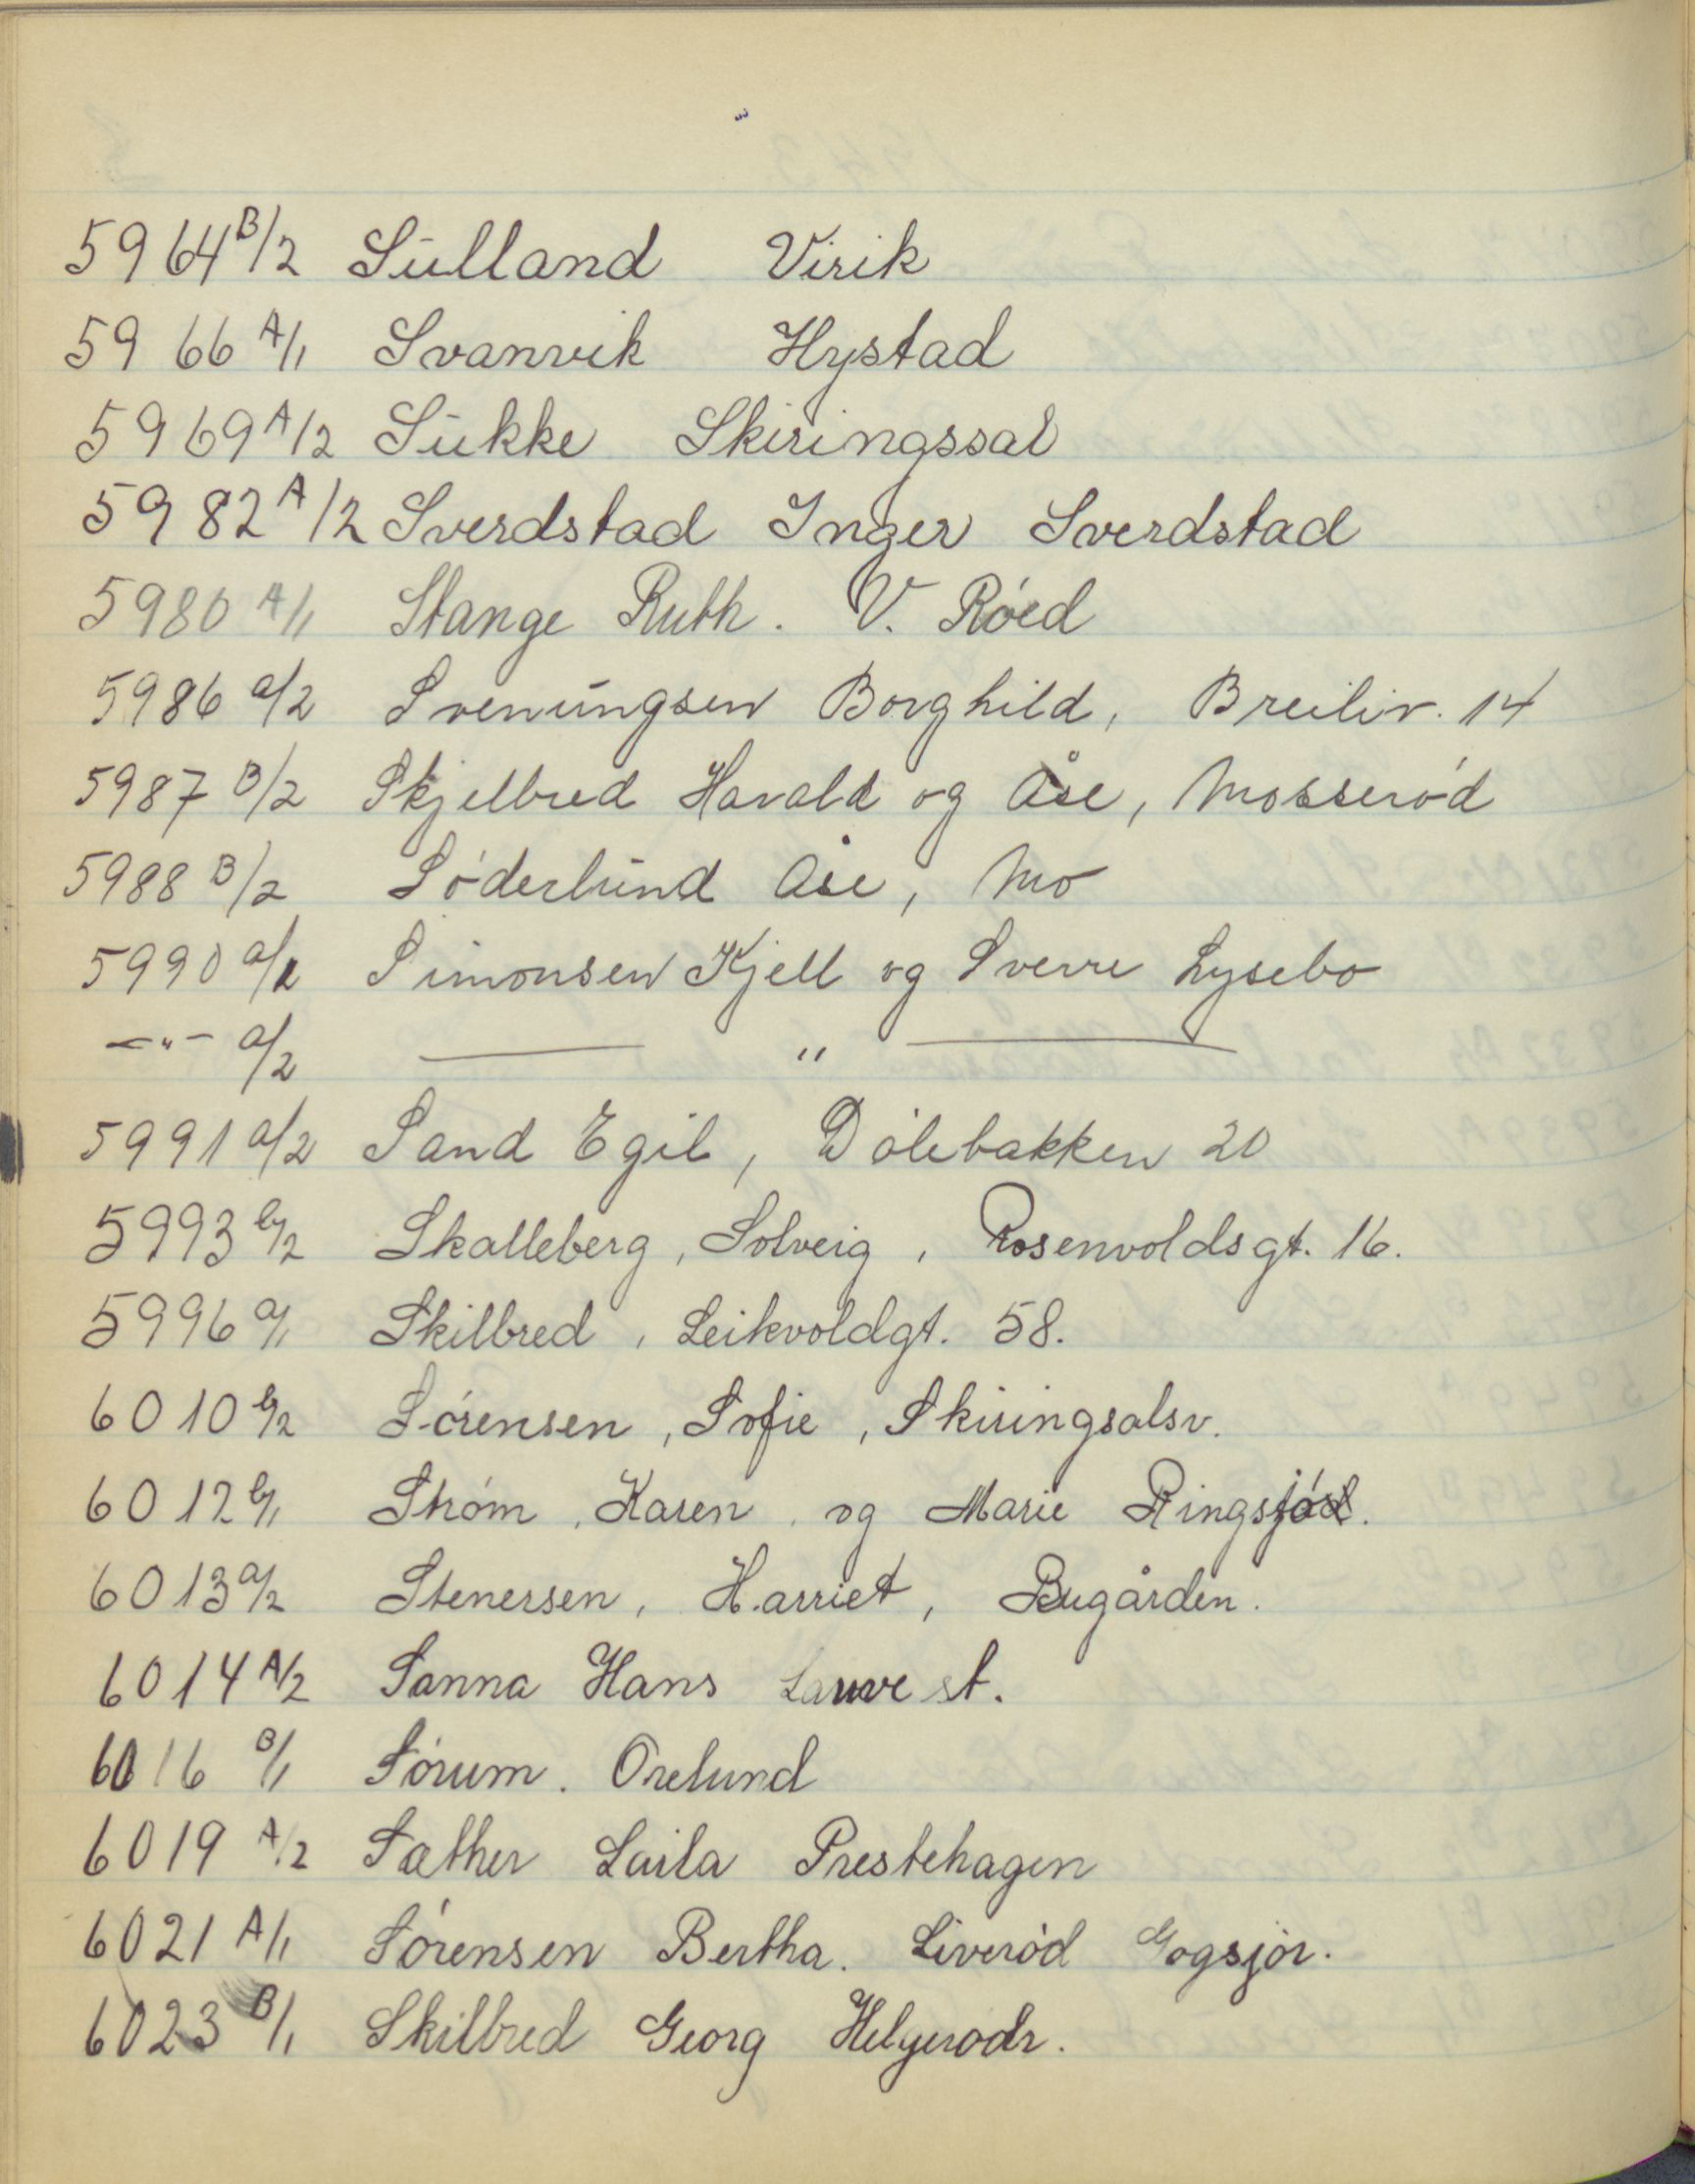 5964 B/2 Sulland Virik
5966 A/1 Svanvik Hystad
5969 A/2 Sukke Skiringssal
5982 A/2 Sverdstad Inger Sverdstad
5980 A/1 Stange Ruth. V. Röed
5986 a/2 Svenungsen Borghild, Breiliv. 14
5987 B/2 Skjelbred Harald og Åse, Mosseröd
5988 B/2 Söderlund Åse, Mo
5990 a/1 Simonsen Kjell og Sverre Lysebo
—"— a/2 —— " ——
5991 a/2 Sand Egil, Dölebakken 20
5993 b/2 Skalleberg, Solveig, Rosenvoldsgt. 16.
5996 a/1 Skilbred, Leikvoldgt. 58.
6010 b/2 Sörensen, Sofie, Skiringsalsv.
6012 b/1 Ström, Karen, og Marie
6013 a/2 Stenersen, Harriet, Bugården.
6014 A/2 Sanna Hans Lauve st.
6016 B/1 Sörum. Orelund
6019 A/2 Sæther Laila Prestehagen
6021 A/1 Sörensen Bertha. Liveröd Gogsjör.
6023 B/1 Skilbred Georg Helgerodr.